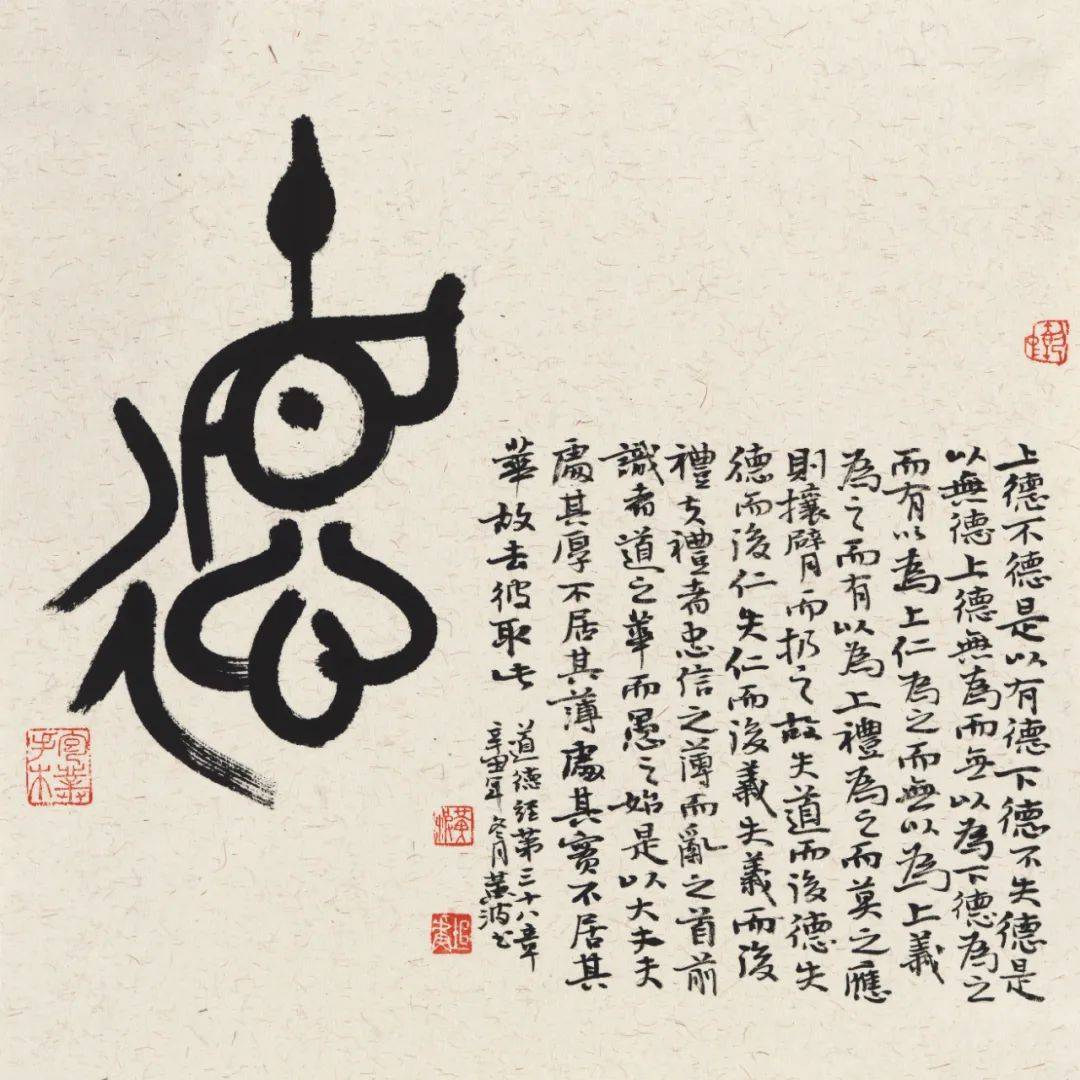 上德不德是以有德下德不失德是
以無德上德無為而無以為下德為之
而有以為上仁為之而無以為上義
為之而有以為上禮為之而莫之應
則攘臂而扔之故失道而後德失
德而後仁失仁而後義失義而後
禮夫禮者忠信之薄而亂之首前
識者道之華而愚之始是以大丈夫
處其厚不居其薄處其實不居其
華故去彼取此
道德經第三十八章
辛丑年冬月黃波書
黃波
德